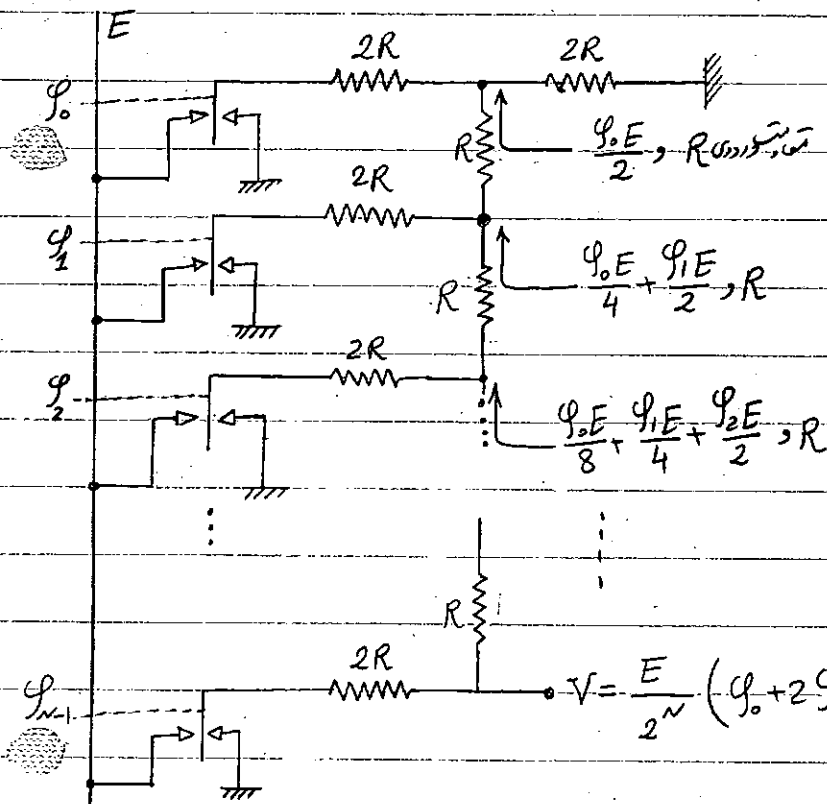 E
2R 2R
φ₀
R φ₀E/2 , R
2R
φ₁
R φ₀E/4 + φ₁E/2 , R
2R
φ₂
φ₀E/8 + φ₁E/4 + φ₂E/2 , R
R
2R
φN-1 V = E/2^N (φ₀ + 2φ